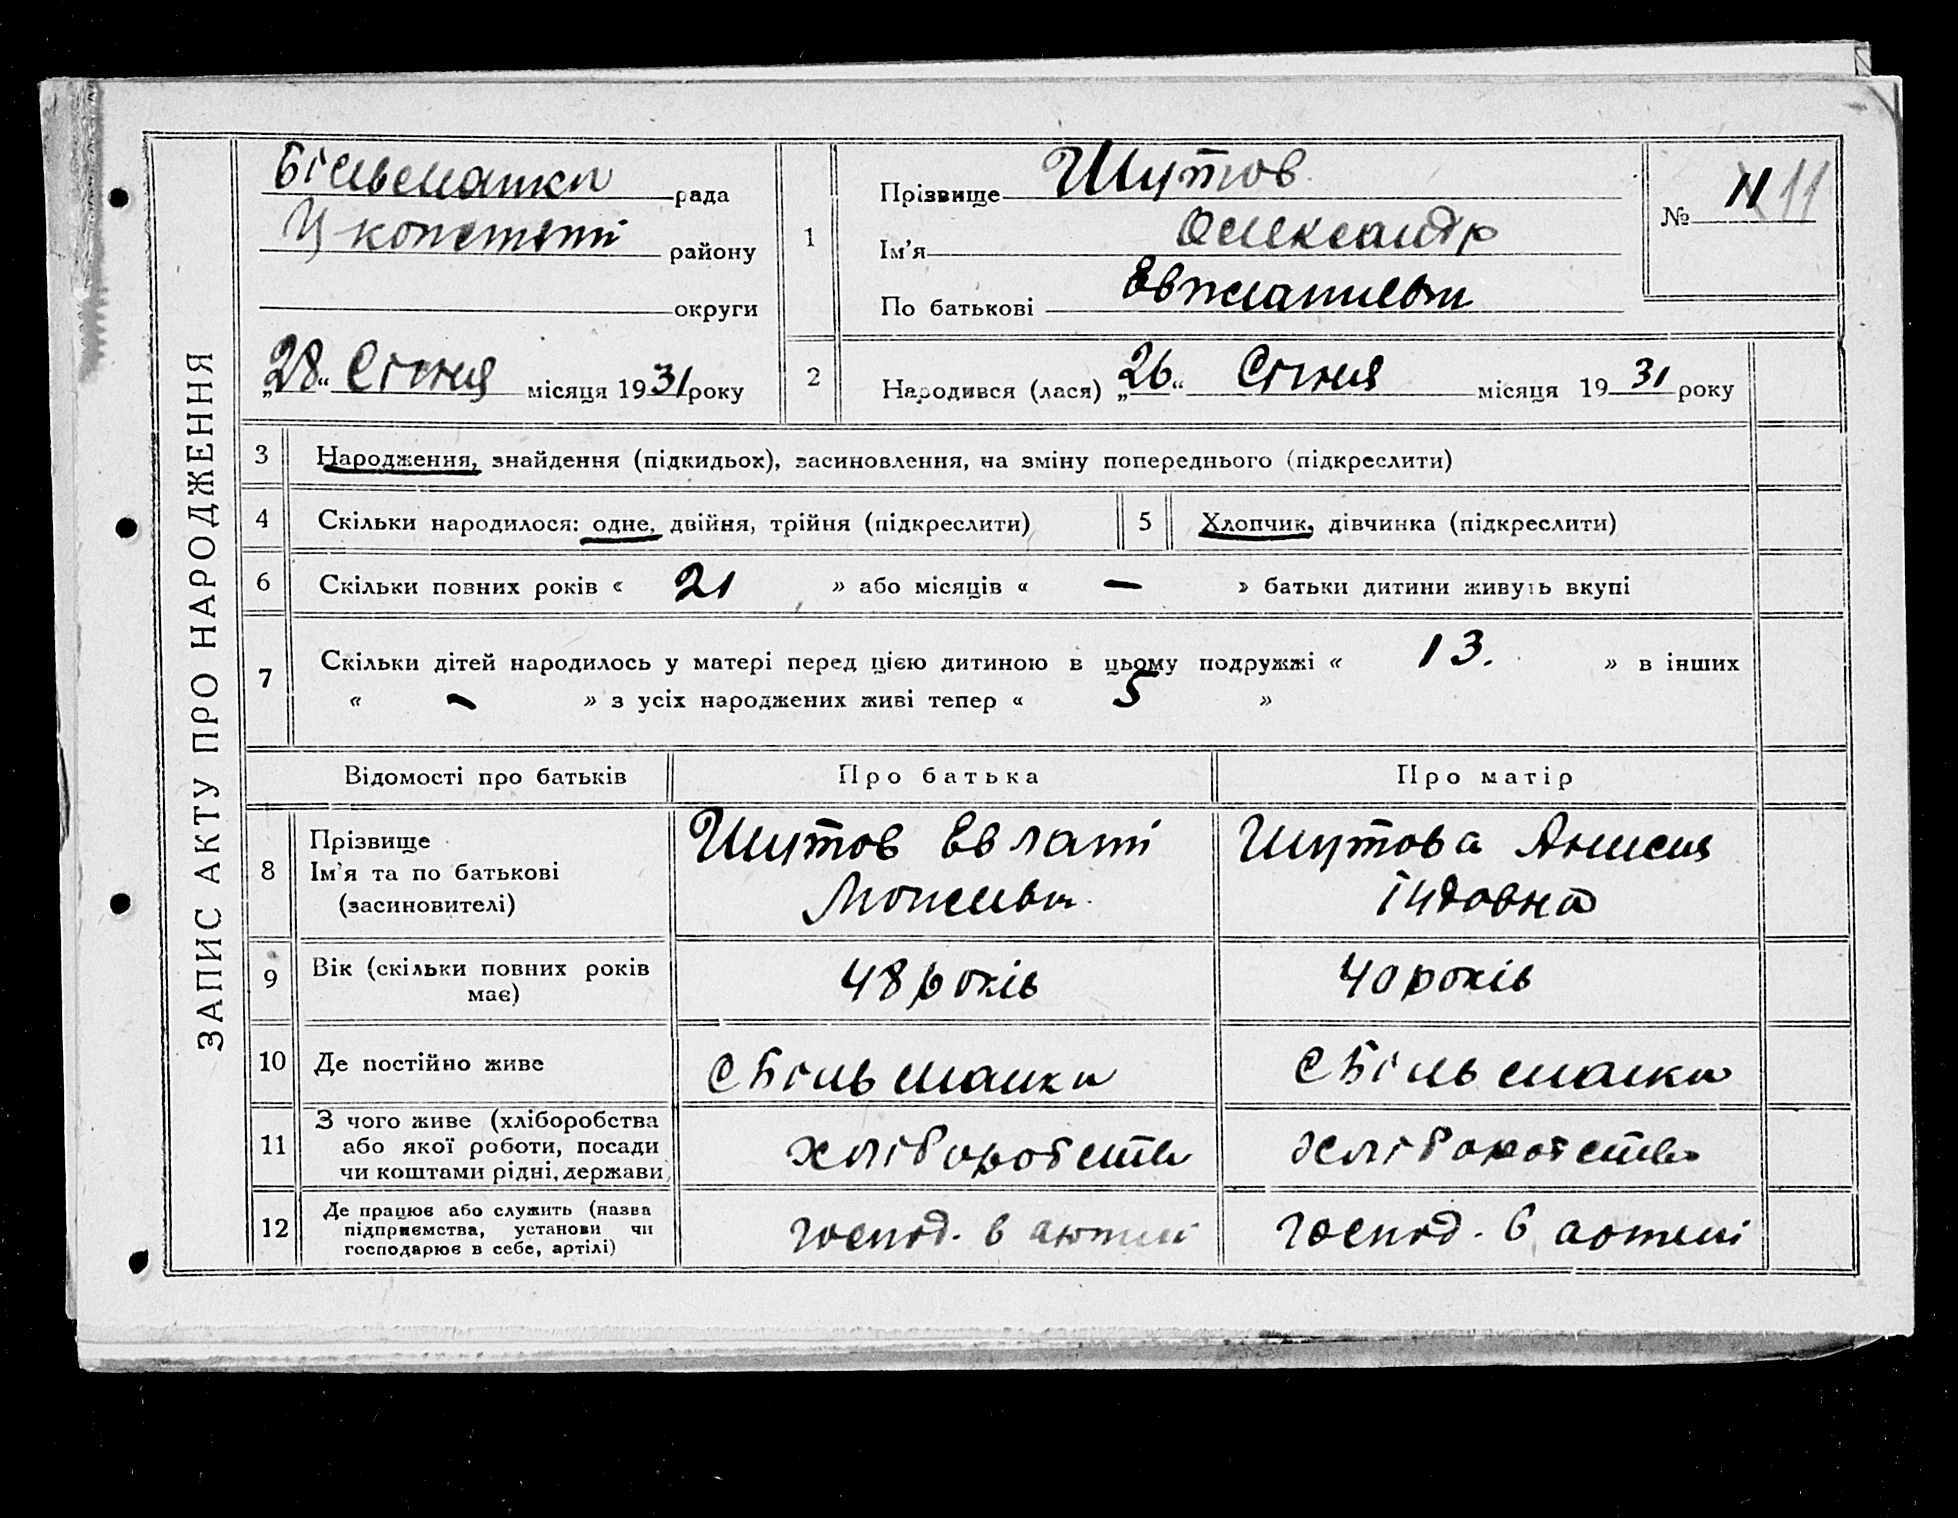 ЗАПИС АКТУ ПРО НАРОДЖЕННЯ
Більманки рада
району
округи
„28“ Січня місяця 1931 року
1
Прізвище Шутов
Ім'я Олександр
По батькові
№ 11 11
2
Народився (лася) „26“ Січня місяця 1931 року
3 Народження, знайдення (підкидьох), засиновлення, на зміну попереднього (підкреслити)
4 Скільки народилося: одне, двійня, трійня (підкреслити)
5 Хлопчик, дівчинка (підкреслити)
6 Скільки повних років « 21 » або місяців « — » батьки дитини живуть вкупі
7 Скільки дітей народилось у матері перед цією дитиною в цьому подружжі « 13. » в інших
« - » з усіх народжених живі тепер « 5 »
Відомості про батьків
Про батька
Про матір
8
Прізвище
Ім'я та по батькові
(засиновителі)
Шутов
Шутова Анисия
9
Вік (скільки повних років
має)
48 років
40 років
10 Де постійно живе
с Більманки
с Більманки
11
З чого живе (хліборобства
або якої роботи, посади
чи коштами рідні, держави
хліборобств
хліборобство
12
Де працює або служить (назва
підприємства, установи чи
господарює в себе, артілі)
господ. в артилі
господ. в артилі